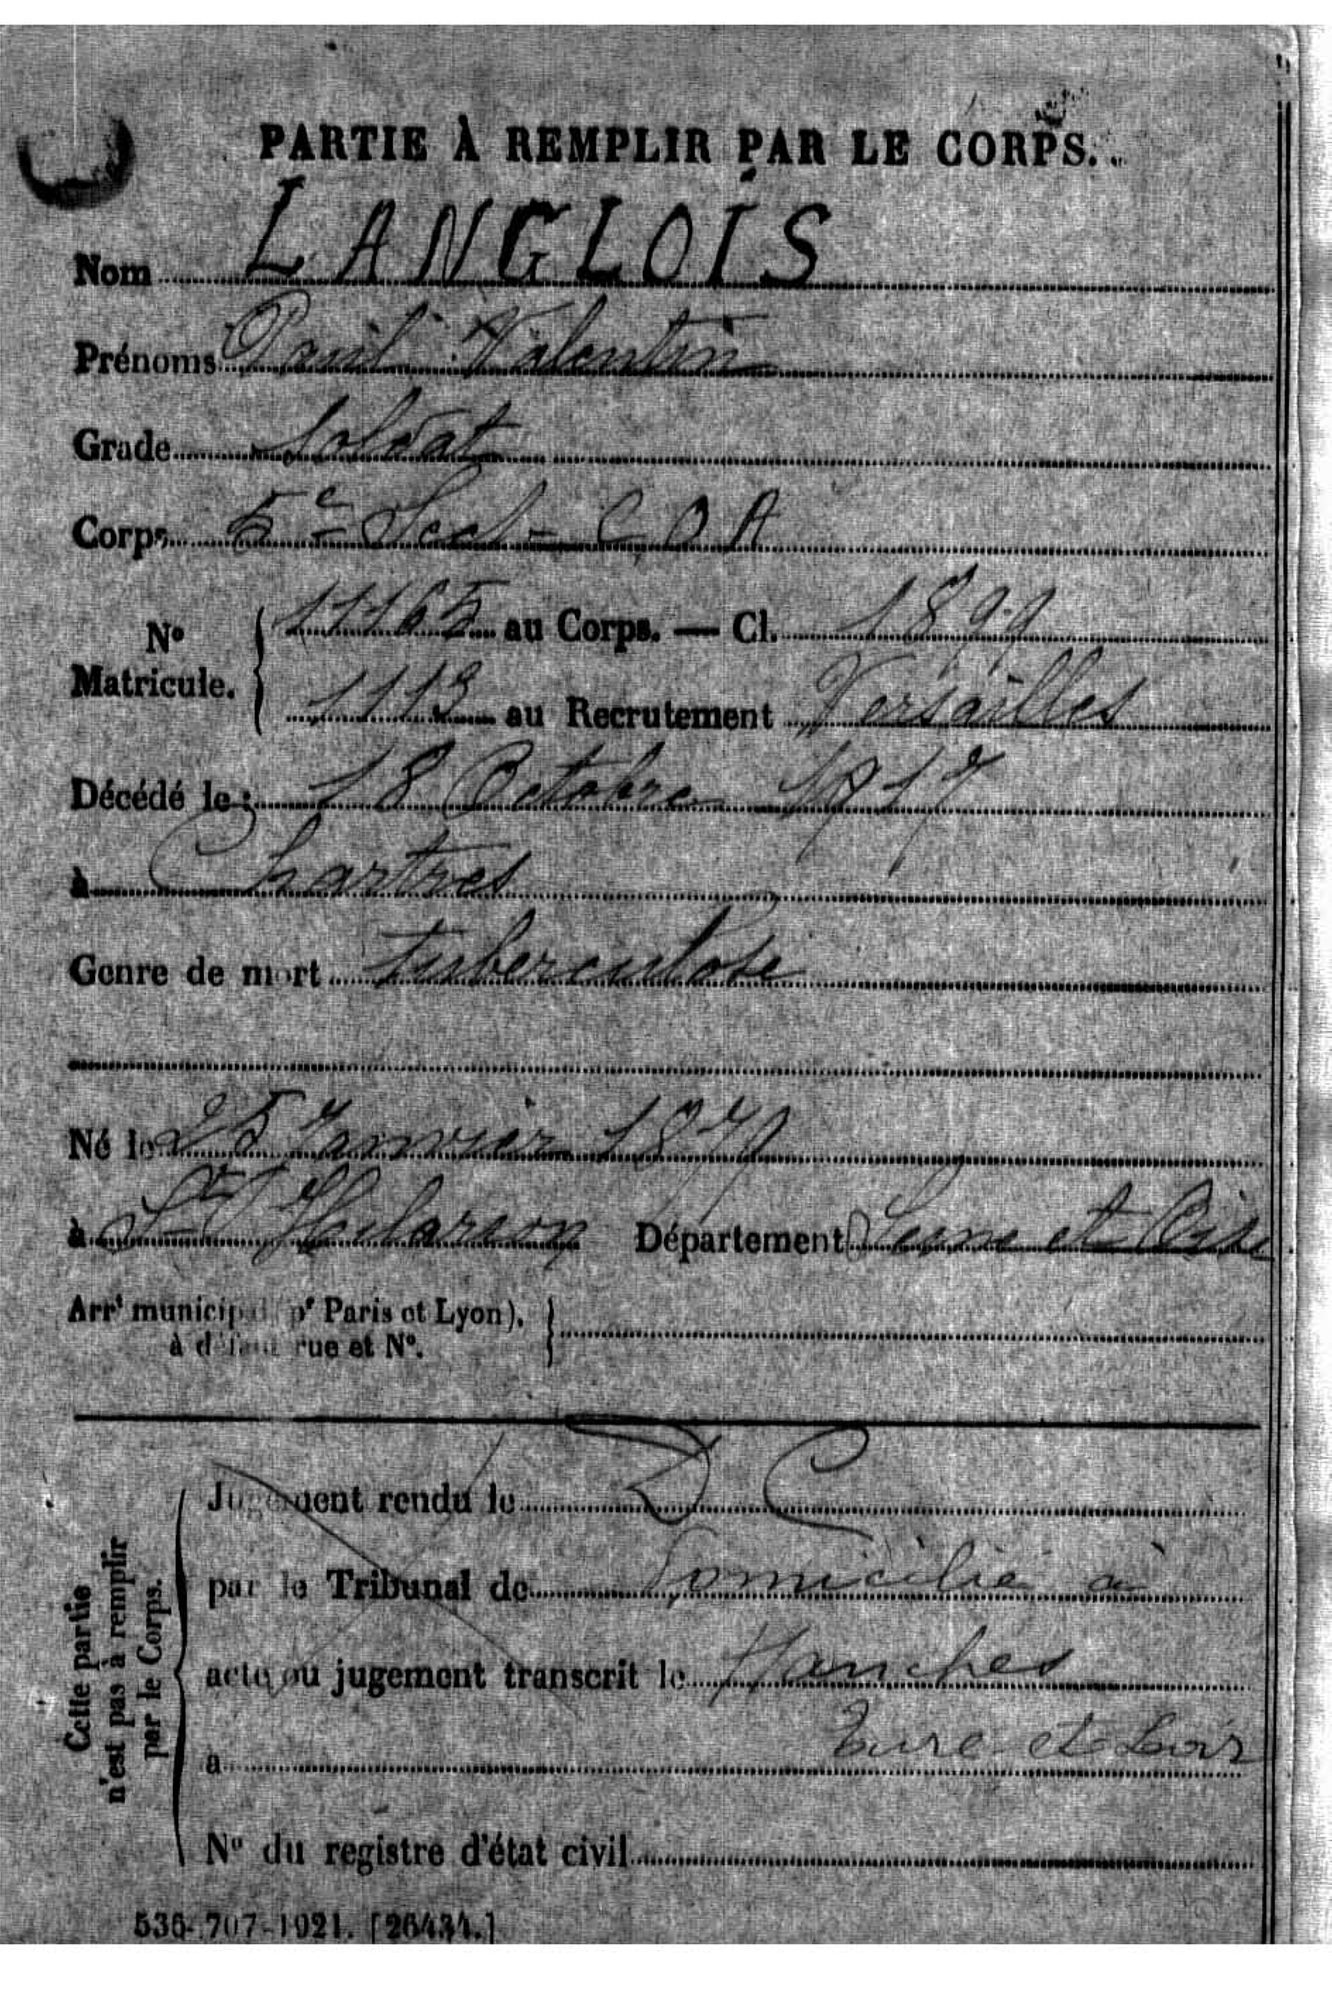 PARTIE À REMPLIR PAR LE CORPS.
Nom LANGLOIS
Prénoms Paul Valentin
Grade Soldat
Corps 5e Sect - C O A
N° Matricule. { 11165 au Corps. — Cl. 1899
1113 au Recrutement Versailles
Décédé le : 18 Octobre 1917
à Chartres
Genre de mort tuberculose
Né le 25 Janvier 1879
à St Hilarion Département Seine et Oise
Arrt municipal (pr Paris et Lyon), }
à défaut rue et N°.
Cette partie n'est pas à remplir par le Corps.
Jugement rendu le D C
par le Tribunal de Domicilié à
acte ou jugement transcrit le Hanches
à Eure et Loir
N° du registre d'état civil
536-707-1921. [26434.]